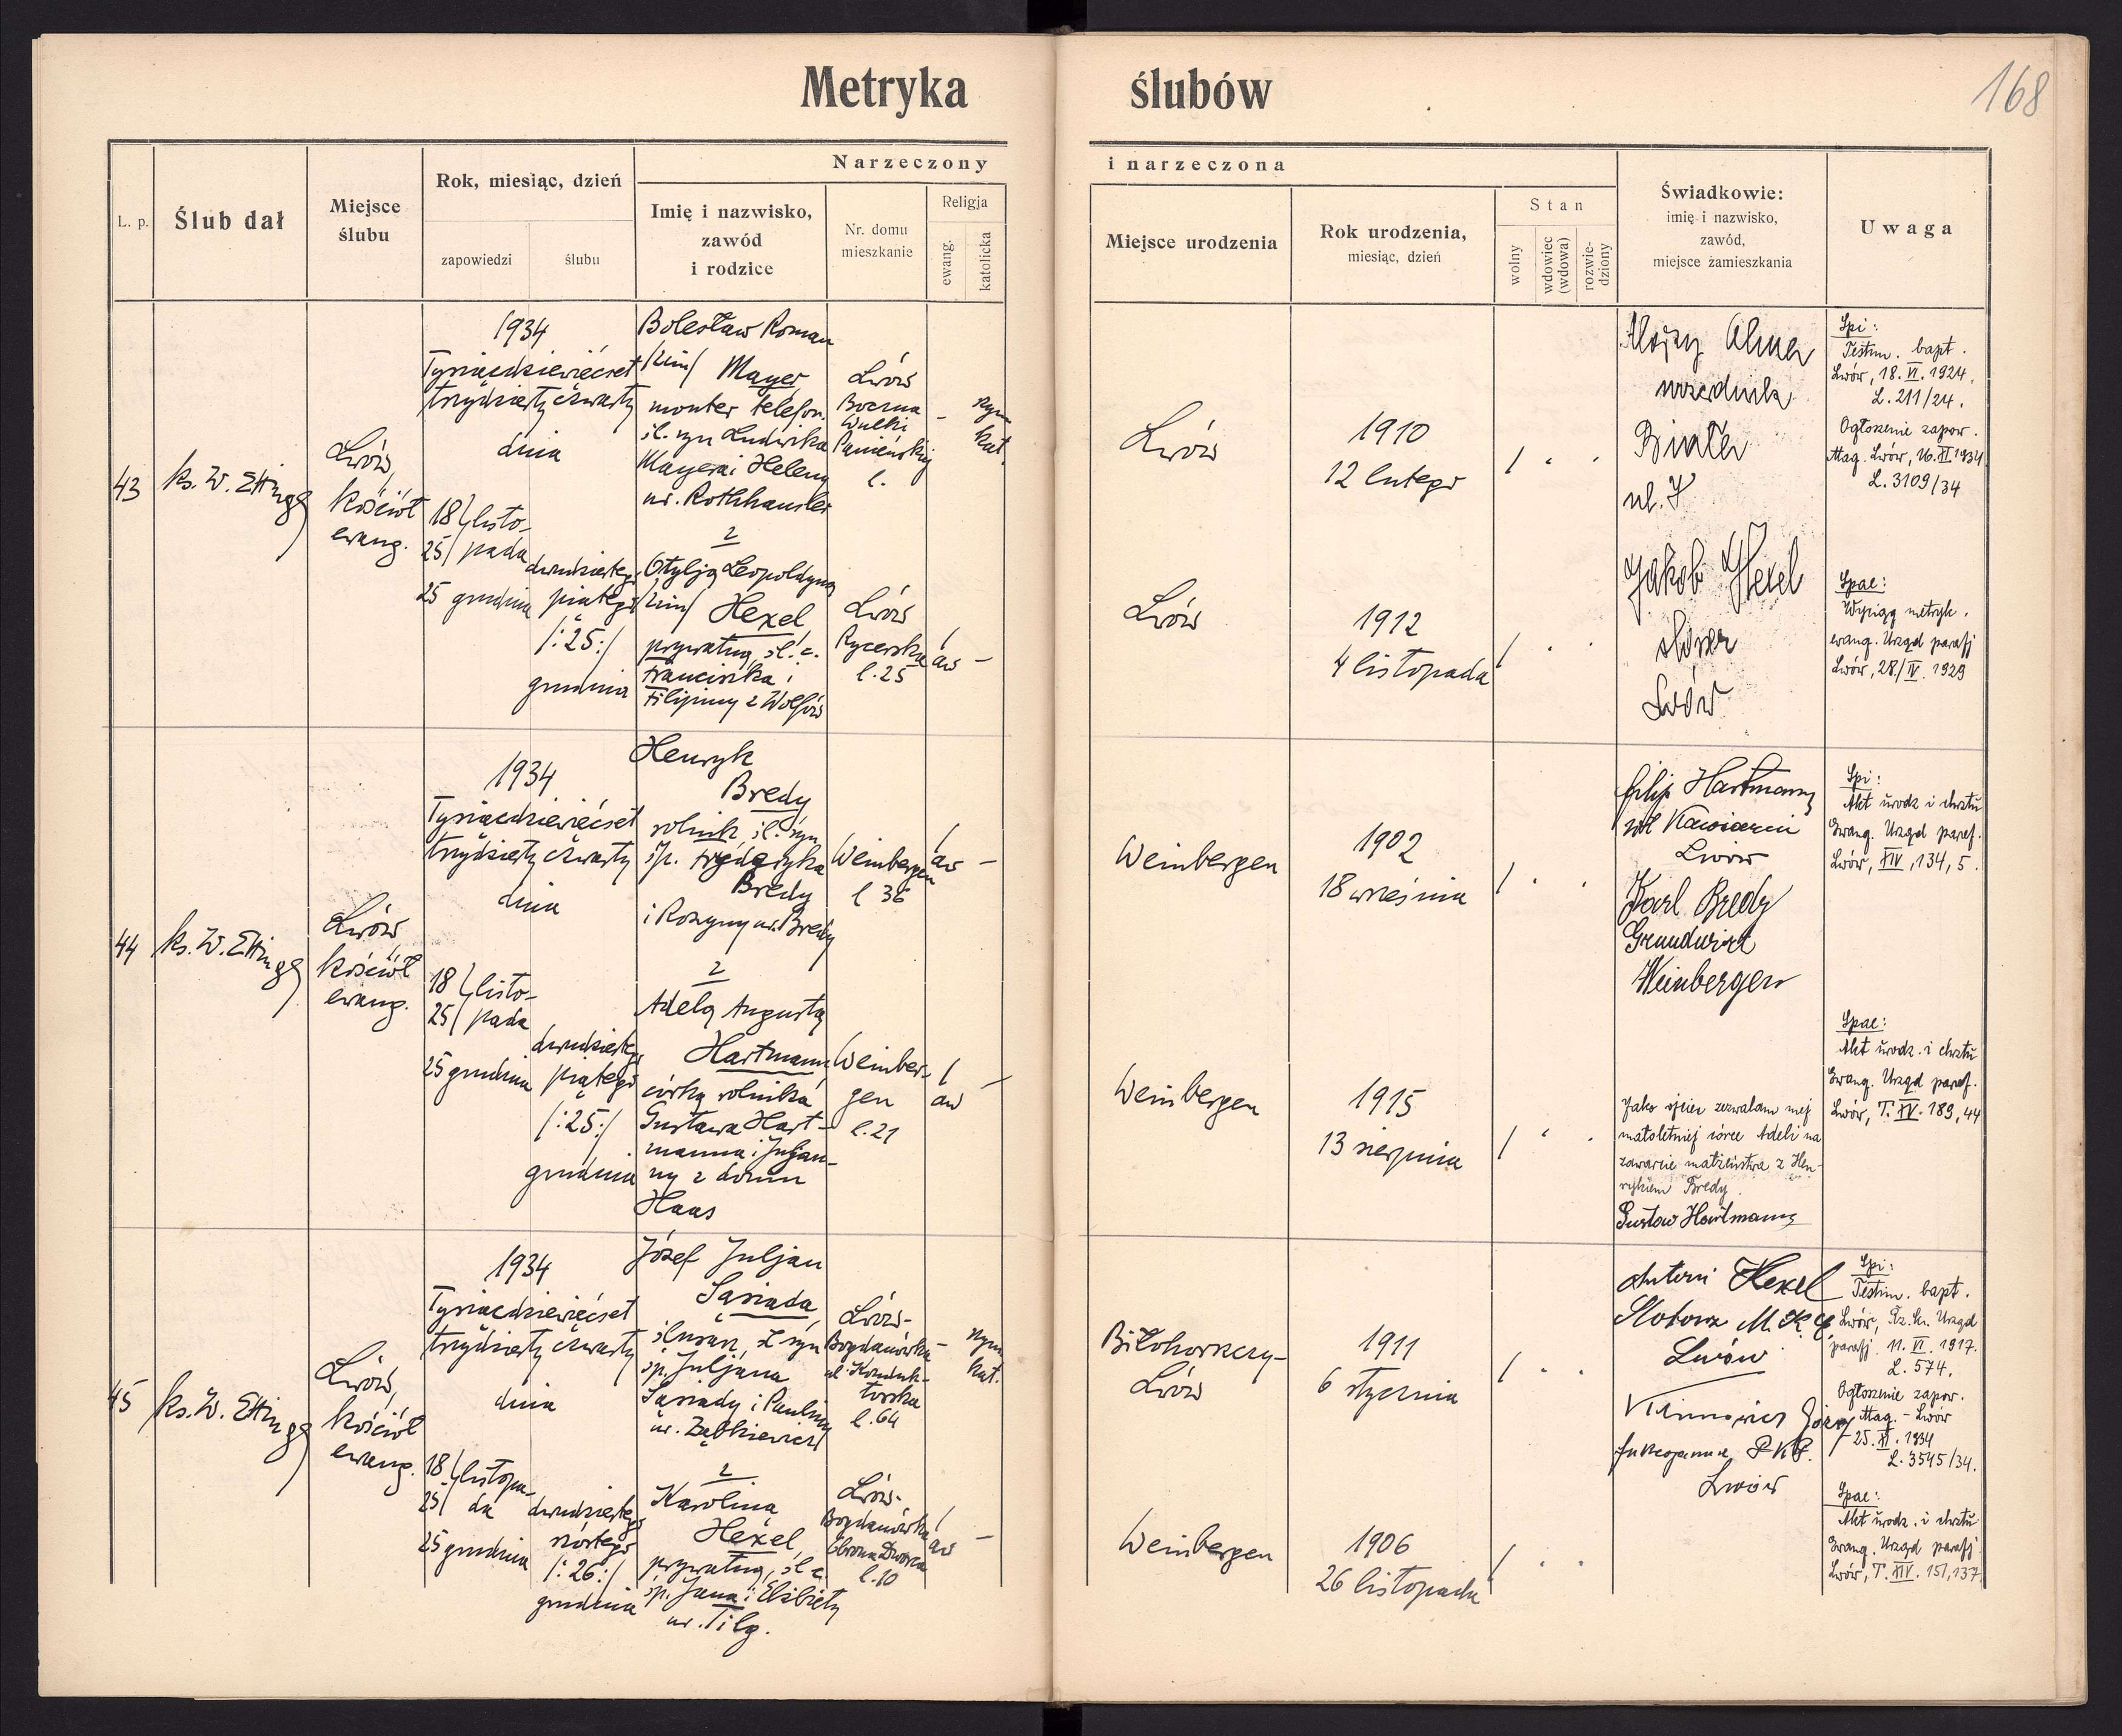 Metryka ślubów
168
L. p.
Ślub dał
Miejsce
ślubu
Rok, miesiąc, dzień
zapowiedzi
ślubu
Narzeczony i narzeczona
Imię i nazwisko,
zawód
i rodzice
Nr. domu
mieszkanie
Religja
ewang.
katolicka
Miejsce urodzenia
Rok urodzenia,
miesiąc, dzień
Stan
wolny
wdowiec
(wdowa)
rozwie-
dziony
Świadkowie:
imię i nazwisko,
zawód,
miejsce żamieszkania
Uwaga
43
ks. W. Ettinger
Lwów,
kościół
ewang.
1934
Tysiącdziewięćset
trzydziesty czwarty
dnia
18 listo-
25 pada
25 grudnia
dwudziestego
piątego
/:25:/
grudnia
Bolesław Roman
/2im/ Mayer
monter telefon.
śl. syn Ludwika
Mayera i Heleny
ur. Rothhausler
z
Otylją Leopoldyną
/2im/ Hexel
prywatną, śl. c.
Franciszka i
Filipiny z Wolfów
Lwów
Boczna
Wulki
Panieńskiej
l.
Lwów
Rycerska
l. 25
–
rzym
kat.
1
aw –
Lwów
1910
12 lutego
1
Lwów
1912
4 listopada
1
urzędnik
Jakob Hexel
Lwów
Spi:
Testim. bapt.
Lwów, 18. VI. 1924.
L. 211/24.
Ogłoszenie zapow.
Mag. Lwów, 26. XI 1934
L. 3109/34
Spae:
Wyciąg metryk.
ewang. Urząd parafj
Lwów, 28./IV. 1929
44
ks. W. Ettinger
Lwów
kościół
ewang.
1934
Tysiącdziewięćset
trzydziesty czwarty
dnia
18 listo-
25 pada
25 grudnia
dwudziestego
piątego
/:25:/
grudnia
Henryk
Bredy
rolnik śl. syn
śp. Fryderyka
Bredy
i Rozyny ur. Bredy
z
Adelą Augustą
Hartmann
córką rolnika
Gustawa Hart-
manna i Juljan-
ny z domu
Haas
Weinbergen
l 36
Weinber-
gen
l. 21
1
aw –
1
aw –
Weinbergen
1902
18 września
1
Weinbergen
1915
13 sierpnia
1
Filip Hartmann
wł Kawiarni
Lwów
Karl Bredy
Grundwirt
Weinbergen
Jako ojciec zezwalam mej
małoletniej córce Adeli na
zawarcie małżeństwa z Hen-
rykiem Bredy.
Gustaw Hartmann
Spi:
Akt urodz i chrztu
Ewang. Urząd paraf.
Lwów, XIV, 134, 5.
Spae:
Akt urodz. i chrztu
Ewang. Urząd paraf.
Lwów, T. XV. 189, 44
45
ks. W. Ettinger
Lwów,
kościół
ewang.
1934
Tysiącdziewięćset
trzydziesty czwarty
dnia
18 listopa-
25 da
25 grudnia
dwudziestego
szóstego
/:26:/
grudnia
Józef Juljan
Sasiada,
ślusarz, śl syn
śp. Juljana
Sasiady i Pauliny
ur. Ząbkiewicz
z
Karolina
Hexel,
prywatną, śl c.
śp. Jana i Elżbiety
ur. Tilg.
Lwów-
Bogdanówka
ul. Konduk-
torska
l. 64
Lwów-
Bogdanówka
Obrona Dworca
l. 10
–
rzym
kat.
1
aw –
Biłohorszcy-
Lwów
1911
6 stycznia
1
Weinbergen
1906
26 listopada
1
Antoni Hexel
Lwów
P.K.P.
Lwów
Spi:
Testim. bapt.
Lwów, Rz. kt. Urząd
parafj. 11. VI. 1917.
L. 574.
Ogłoszenie zapow.
Mag. - Lwów
25. XI. 1934
L. 3545/34.
Spae:
Akt urodz. i chrztu
Ewang. Urząd parafj
Lwów, T. XIV. 151, 137